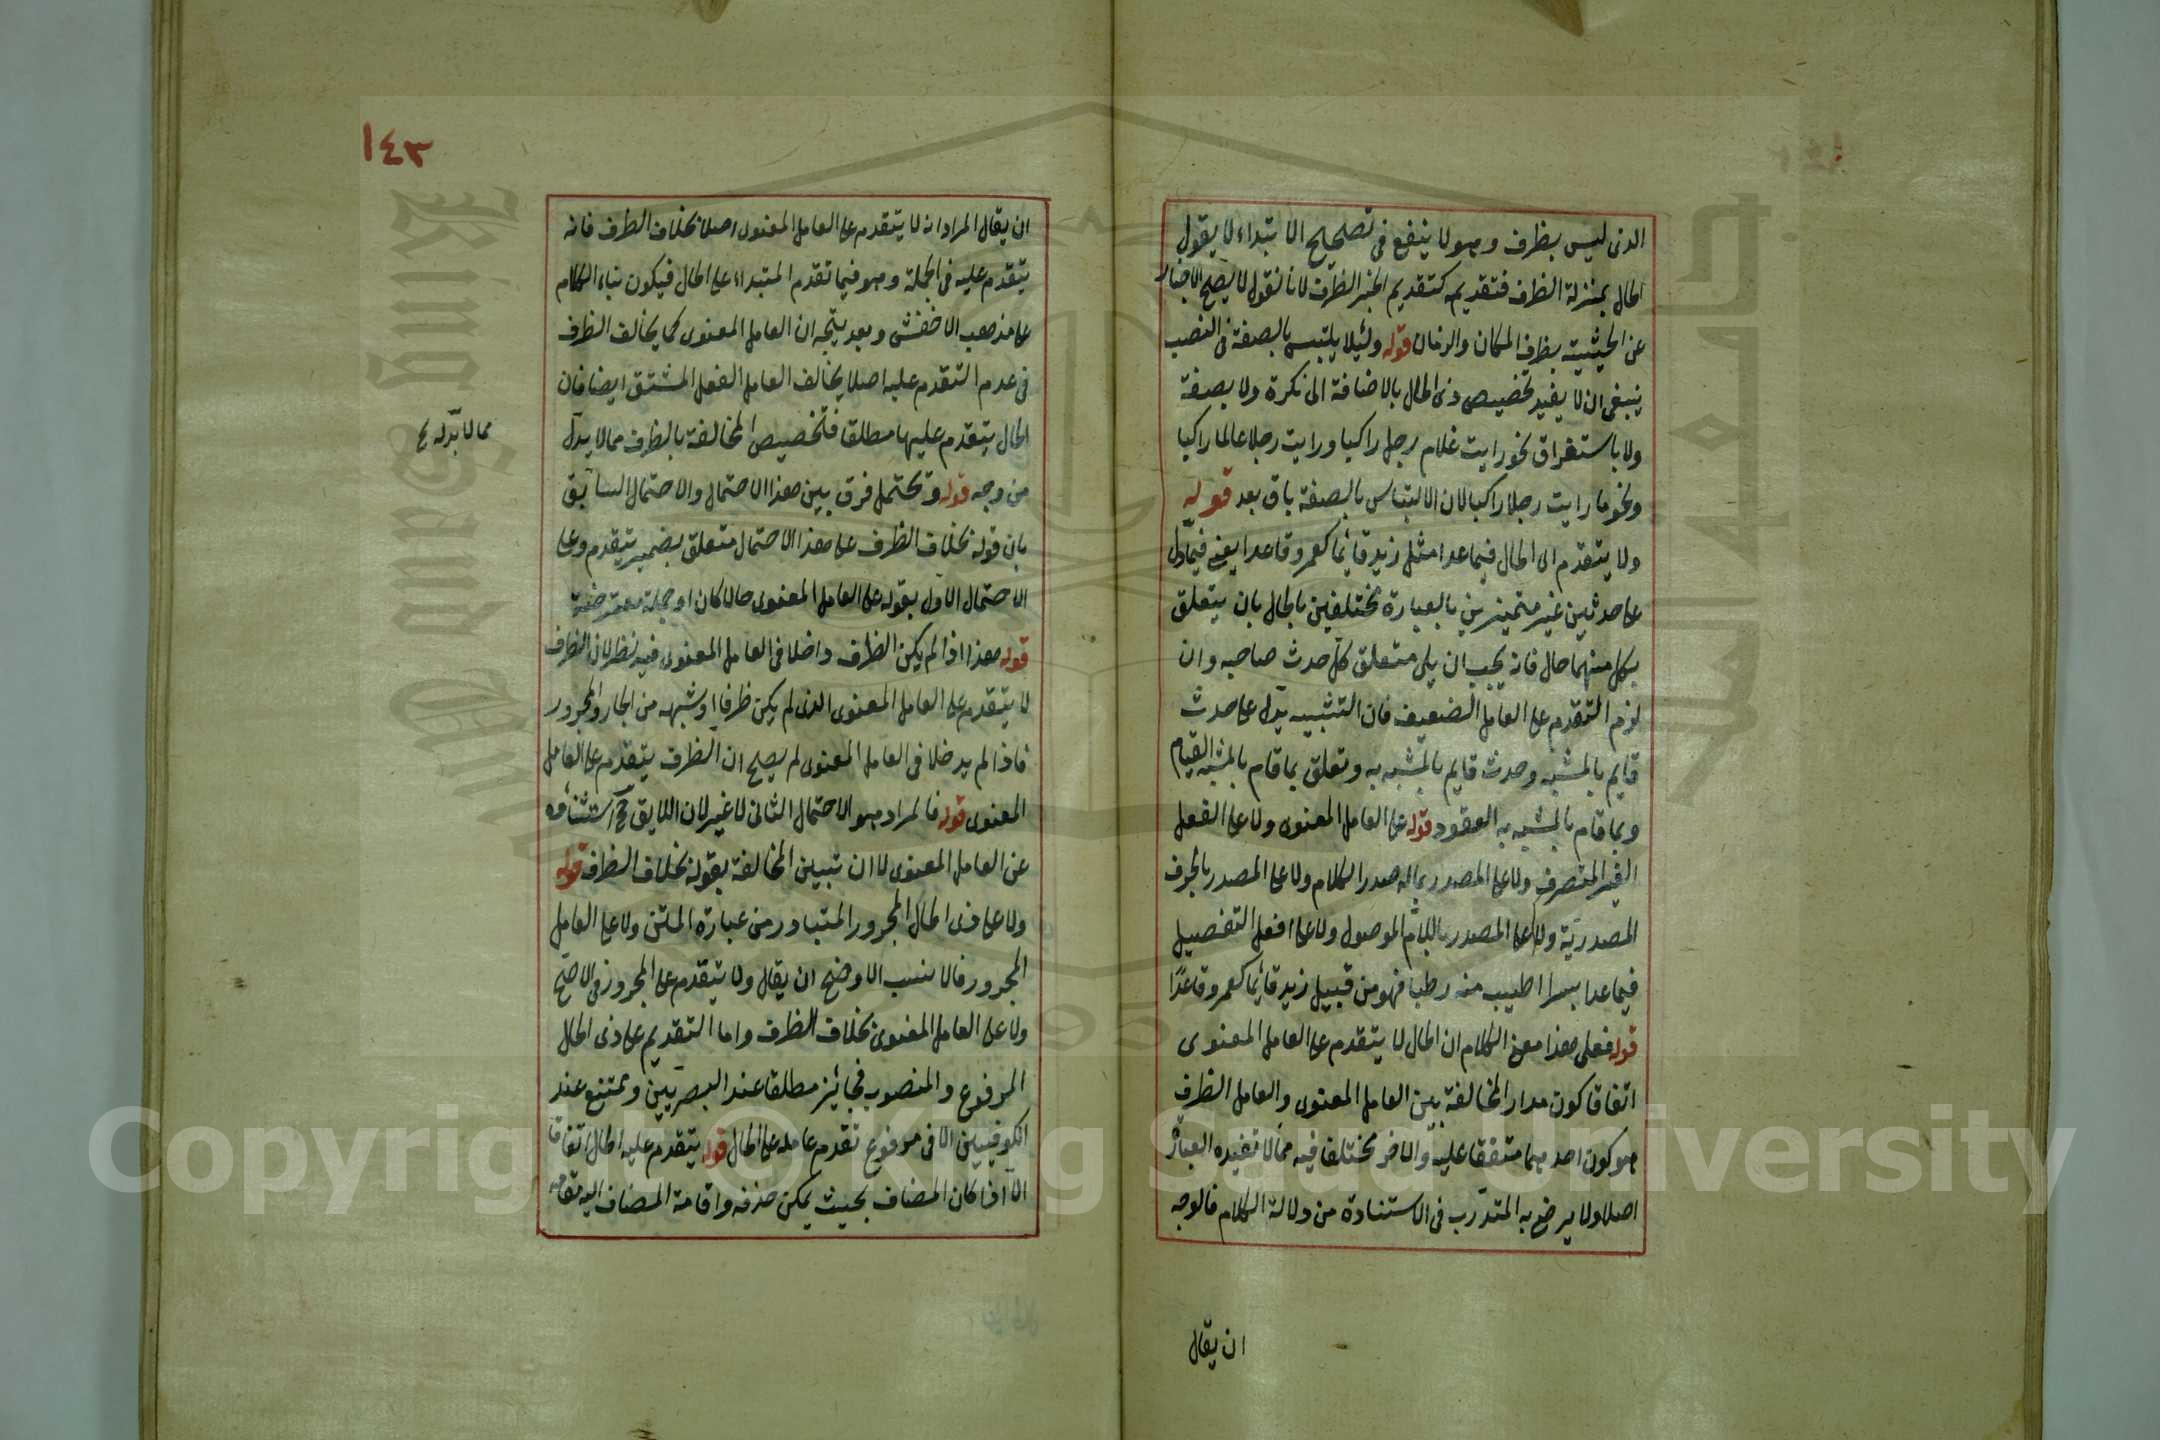 الذى ليس بظرف وهو لا ينفع فى تصحيح الابتداء لا يقول
الحال بمنزلة الظرف فتقديمه كتقديم الخبر الظرف لانا نقول لا يصح الاخبار
عن الحيثية بظرف المكان والزمان قوله ولئيلا يلتبس بالصفة فى النصب
ينبغى ان لا يفيد تخصيص ذى الحال بالاضافة الى نكرة ولا بصفة
ولا باستغراق نحو رايت غلام رجل راكبا ورايت رجلا عالما راكبا
ونحو ما رايت رجلا راكبا لان الالتباس بالصفة باق بعد قوله
ولا يتقدم اى الحال فيما عدا مثل زيد قائما كعمرو قاعدا يعنى فيما دل
على حدثين غير متميزين بالعبارة مختلفين بالحال بان يتعلق
بكل منهما حال فانه يجب ان يلى متعلق كل حدث صاحبه وان
لزم التقدم على العامل الضعيف فان التشبيه يدل على حدث
قايم بالمشبه وحدث قايم بالمشبه به وتعلق بما قام بالمشبه القيام
وبما قام بالمشبه به العقود قوله على العامل المعنوى ولا على الفعل
الغير المتصرف ولا على المصدر بماله صدر الكلام ولا على المصدر بالحرف
المصدرية ولا على المصدر باللام الموصول ولا على افعل التفضيل
فيما عدا بسرا اطيب منه رطبا فهو من قبيل زيد قائما كعمرو قاعدا
قوله فعلى هذا معنى الكلام ان الحال لا يتقدم على العامل المعنوى
اتفاقا كون مدار المخالفة بين العامل المعنوى والعامل الظرف
هو كون احدهما متفقا عليه والاخر مختلفا فيه مما لا تفيده العبارة
اصلا ولا يرضى به المتدرب فى الاستفادة من دلالة الكلام فالوجه
ان يقال
١٤٣
ان يقال المراد انه لا يتقدم على العامل المعنوى اصلا بخلاف الظرف فانه
يتقدم عليه فى الجملة وهو فيما تقدم المبتداء على الحال فيكون بناء الكلام
على مذهب الاخفش وبعد يتجه ان العامل المعنوى كما يخالف الظرف
فى عدم التقدم عليه اصلا يخالف العامل الفعل المشتق ايضا فان
الحال يتقدم عليها مطلقا فتخصيص المخالفة بالظرف مما لا يدل
مما لا بد له
من وجه قوله وتحتمل فرق بين هذا الاحتمال والاحتمال السابق
بان قوله بخلاف الظرف على هذا الاحتمال متعلق بضمير يتقدم وعلى
الاحتمال الاول بقوله على العامل المعنوى حالا كان او جملة معترضة
قوله هذا اذا لم يكن الظرف داخلا فى العامل المعنوى فيه نظر لان الظرف
لا يتقدم على العامل المعنوى الذى لم يكن ظرفا او شبهه من الجار والمجرور
فاذا لم يدخلا فى العامل المعنوى لم يصح ان الظرف يتقدم على العامل
المعنوى قوله فالمراد هو الاحتمال الثانى لا غير لان اللايق ح استثناؤه
عن العامل المعنوى لا ان تبيين المخالفة بقوله بخلاف الظرف قوله
ولا على ذى الحال المجرور المتبادر من عبارة المتن ولا على العامل
المجرور فالانسب الاوضح ان يقال ولا يتقدم على المجرور فى الاصح
ولا على العامل المعنوى بخلاف الظرف واما التقديم على ذى الحال
المرفوع والمنصوب فجائز مطلقا عند البصريين ويمتنع عند
الكوفيين الا فى مرفوع تقدم عامله على الحال قوله يتقدم عليه الحال اتفاقا
الا اذا كان المضاف بحيث يمكن حذفه واقامة المضاف اليه مقامه
Copyright © King Saud University